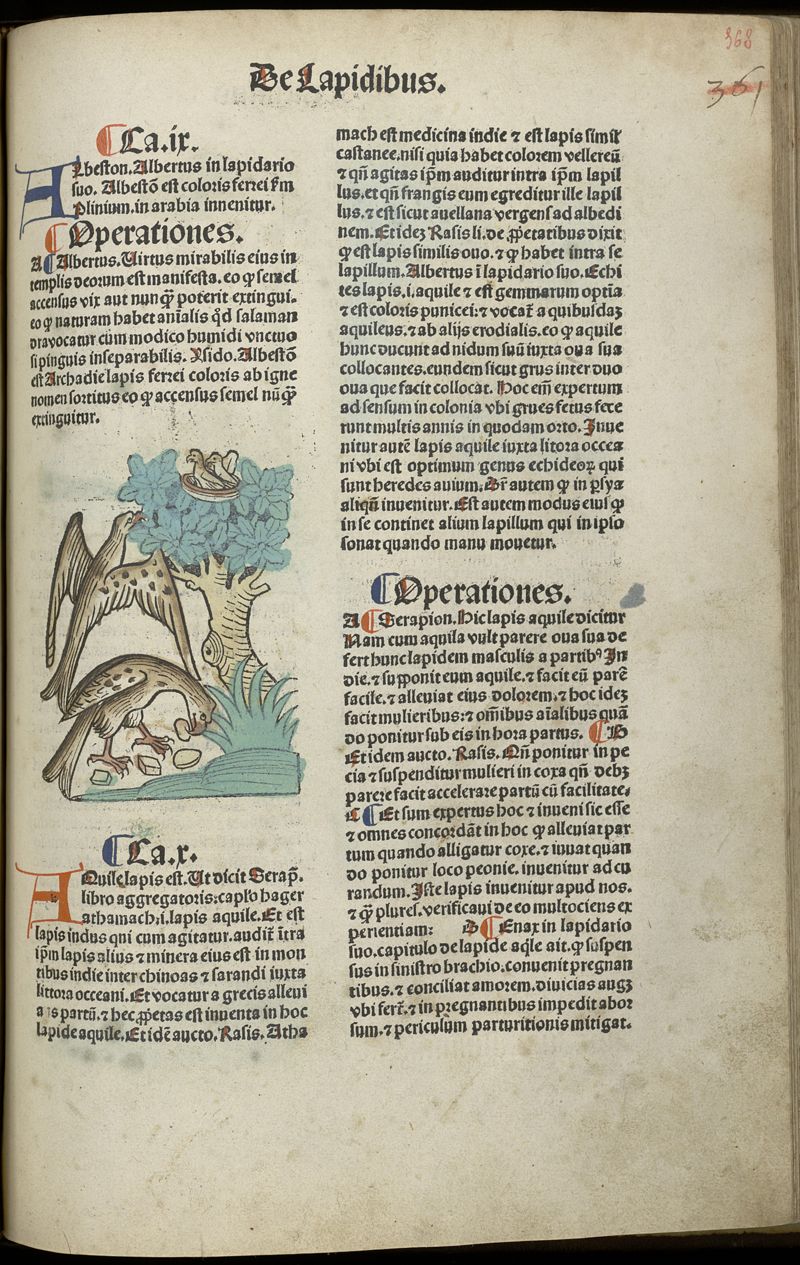 368
361
De Lapidibus.
Ca.ix.
Albeston. Albertus in lapidario
suo. Albestō est coloris ferrei s̄m
Plinium. in arabia inuenitur.
Operationes.
A Albertus. Uirtus mirabilis eius in
templis deorum est manifesta. eo ꝙ semel
accensus vix aut nunq̄ꝫ poterit extingui.
eo ꝙ naturam habet aīalis qd̄ salaman
dra vocatur cum modico humidi vnctuo
si pinguis inseparabilis. Ysido. Albestō
est Archadie lapis ferrei coloris ab igne
nomen sortitus eo ꝙ accensus semel nūq̄ꝫ
extinguitur.
Ca.x.
AQuile lapis est. Ut dicit Serap̄.
libro aggregatoris: caplo hager
athamach; i. lapis aquile. Et est
lapis indus qui cum agitatur. audit̄ ītra
ip̄m lapis alius ⁊ minera eius est in mon
tibus indie inter chinoas ⁊ sarandi iuxta
littora occeani. Et vocatur a grecis alleui
partū. ⁊ hec ꝓpetas est inuenta in hoc
lapide aquile. Et idē aucto. Rasis. Atha
mach est medicina indie ⁊ est lapis simił
castanee. nisi quia habet colorem vellereū
⁊ qn̄ agitas ip̄m auditur intra ip̄m lapil
lus. et qn̄ frangis eum egreditur ille lapil
lus. ⁊ est sicut auellana vergens ad albedi
nem. Et ideꝫ Rasis li. de ꝓpetatibus dixit
ꝙ est lapis similis ouo. ⁊ ꝙ habet intra se
lapillum. Albertus ī lapidario suo. Echi
tes lapis. i. aquile ⁊ est gemmarum optīa
⁊ est coloris punicei: ⁊ vocat̄ a quibusdaꝫ
aquileus. ⁊ ab alijs erodialis. eo ꝙ aquile
hunc ducunt ad nidum suū iuxta oua sua
collocantes. eundem sicut grus inter duo
oua que facit collocat. Hoc em̄ expertum
ad sensum in colonia vbi grues fetus fece
runt multis annis in quodam orto. Inue
nitur autē lapis aquile iuxta litora occea
ni vbi est optimum genus echideoꝝ qui
sunt heredes auium. Dr̄ autem ꝙ in ꝑsya
aliqn̄ inuenitur. Est autem modus eius ꝙ
in se continet alium lapillum qui in ipso
sonat quando manu mouetur.
Operationes.
A Serapion. Hic lapis aquile dicitur
Nam cum aquila vult parere oua sua de
fert hunc lapidem masculis a partibꝰ In
die. ⁊ supponit eum aquile. ⁊ facit eū parē
facile. ⁊ alleuiat eius dolorem. ⁊ hoc ideꝫ
facit mulieribus: ⁊ om̄ibus aīalibus quā
do ponitur sub eis in hora partus. B
Et idem aucto. Rasis. Qn̄ ponitur in pe
cia ⁊ suspenditur mulieri in coxa qn̄ debꝫ
parere facit accelerare partū cū facilitate.
C Et sum expertus hoc ⁊ inueni sic esse
⁊ omnes concordāt in hoc ꝙ alleuiat par
tum quando alligatur coxe. ⁊ iuuat quan
do ponitur loco peonie. inuenitur ad cu
randum. Iste lapis inuenitur apud nos.
⁊ q̄ꝫ plures. verificaui de eo multociens ex
perientiam: D Enax in lapidario
suo. capitulo de lapide aq̄le ait. ꝙ suspen
sus in sinistro brachio. conuenit pregnan
tibus. ⁊ conciliat amorem. diuicias augꝫ
vbi fert̄. ⁊ in pregnantibus impedit abor
sum. ⁊ periculum parturitionis mitigat.